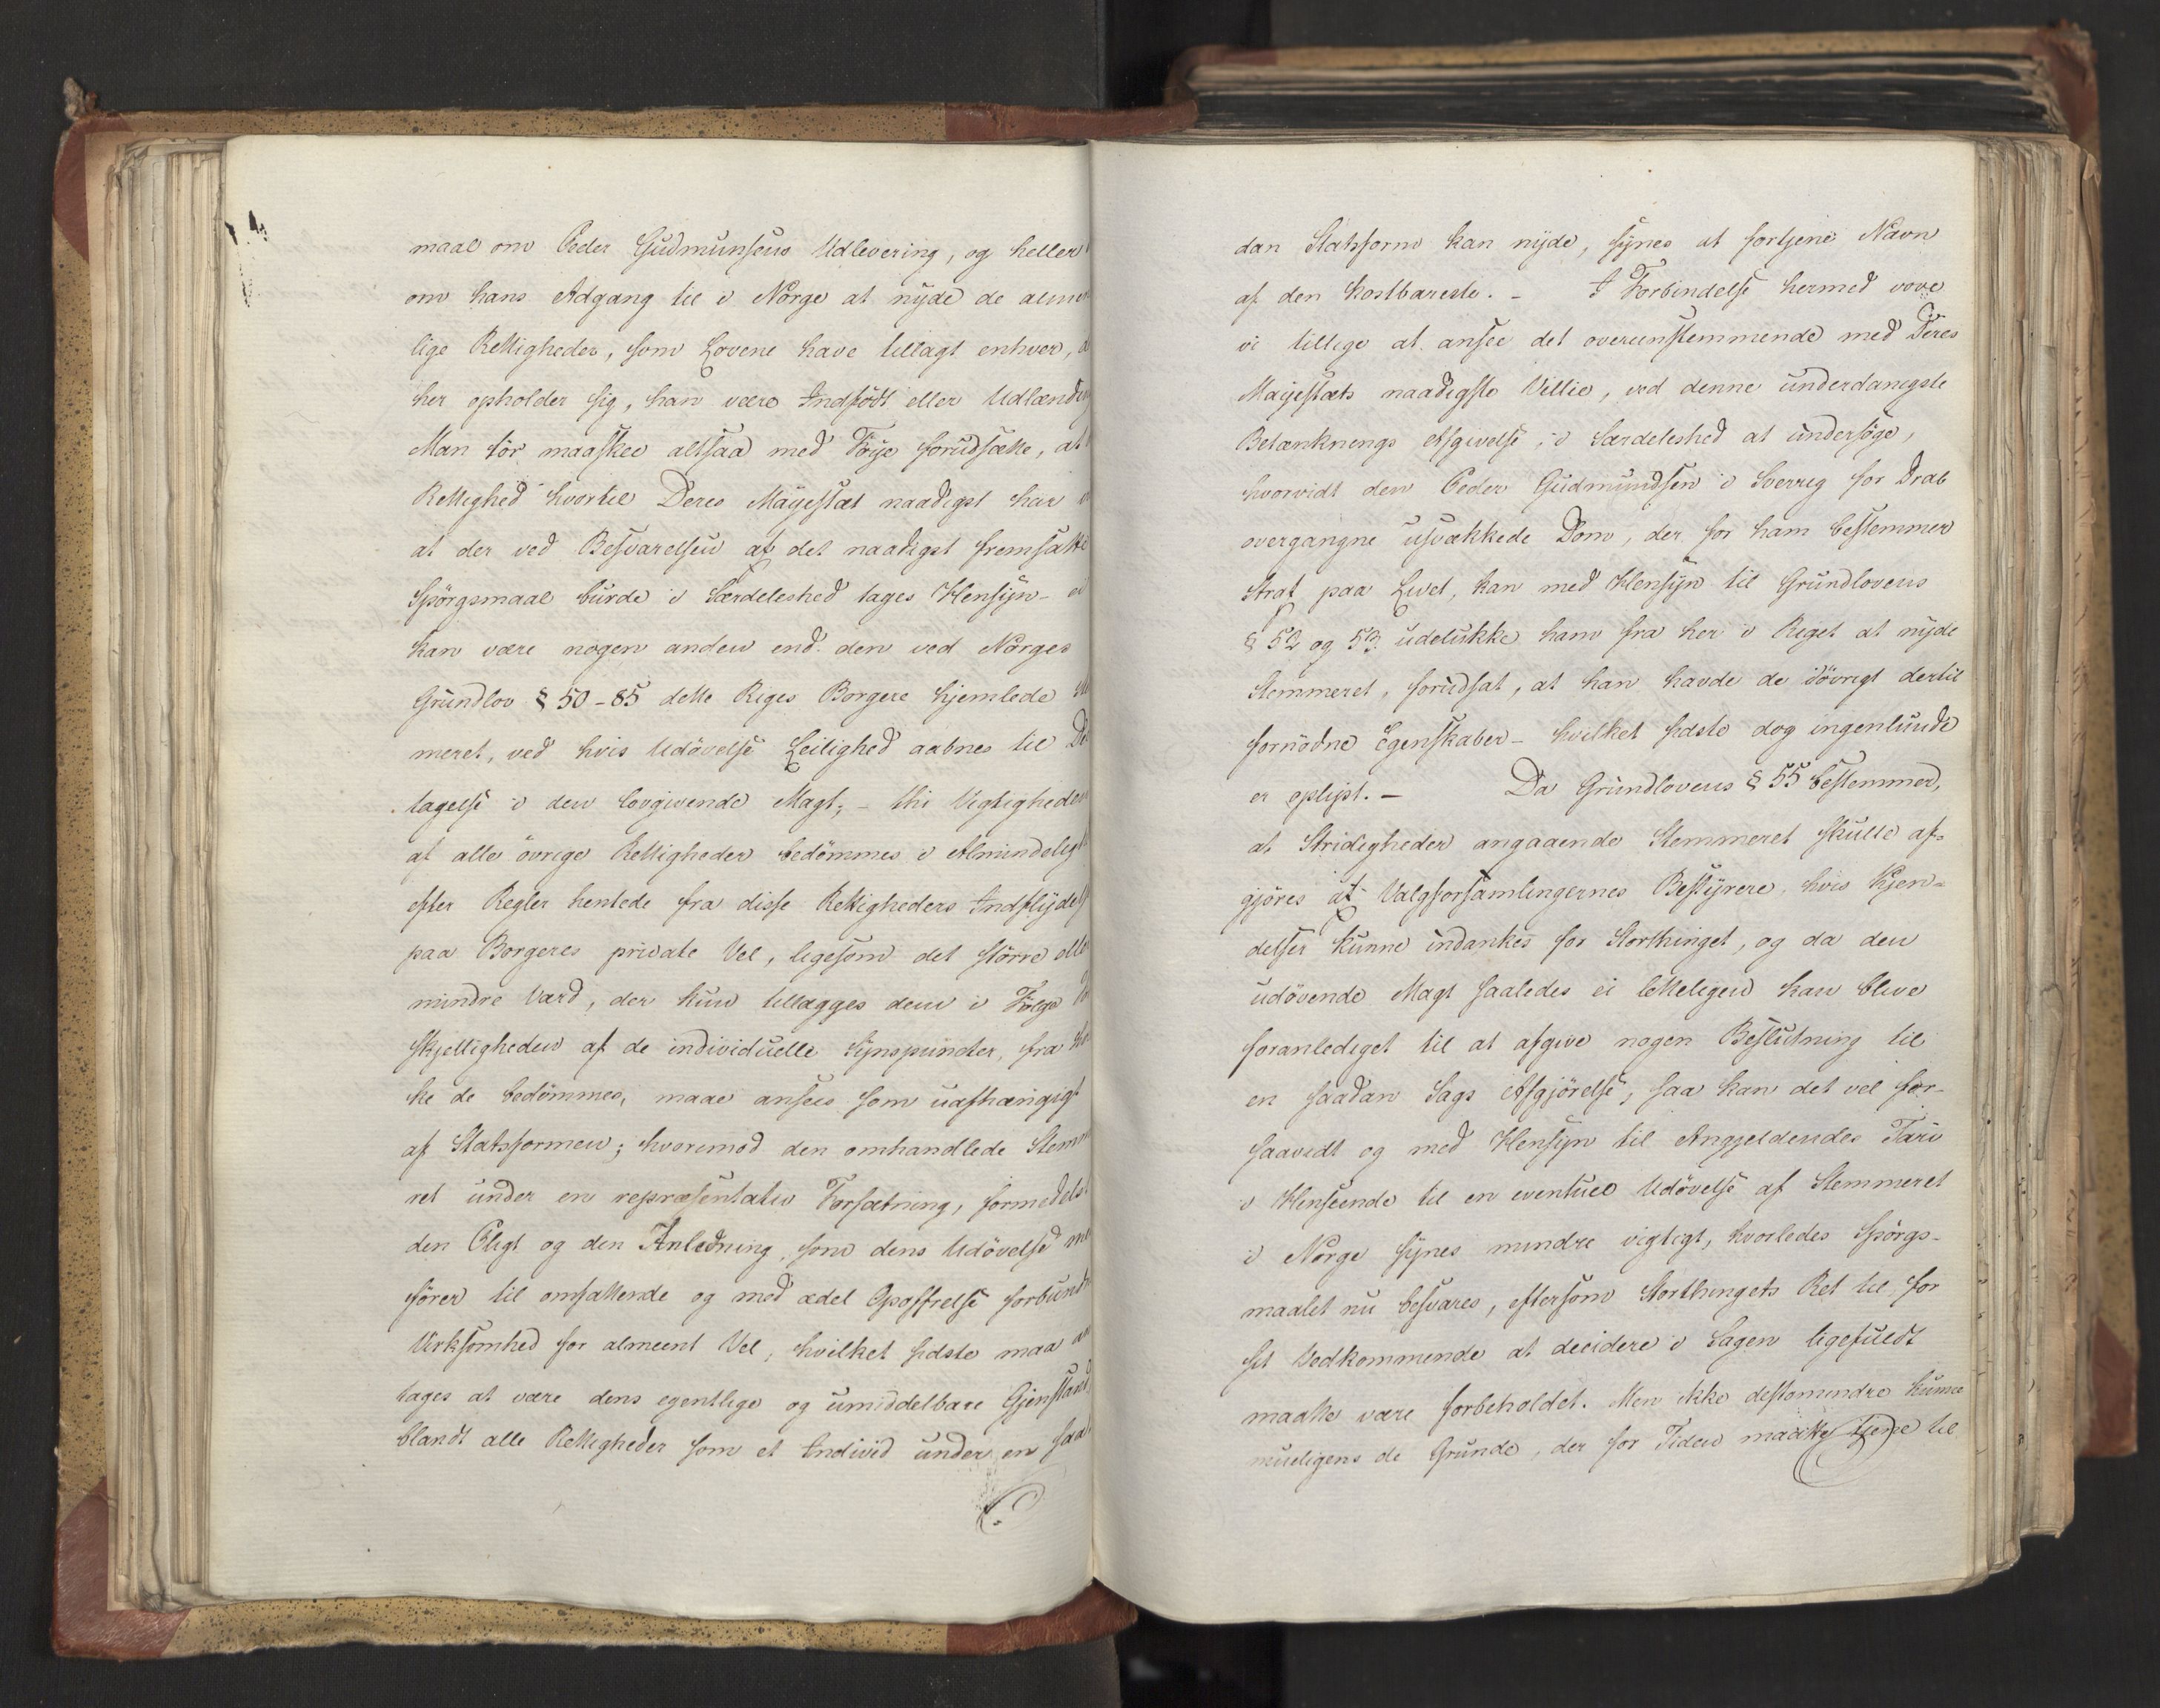 maal om Peder Gudmunsens Udlevering, og heller
om hans Adgang til i Norge at nyde de almin
lige Rettigheder, som Lovene have tillagt enhver, d
her opholder sig, han være Indfödt eller Udlænding
Man tör maaskee altsaa med Föye forudsætte, at
Rettighed hvortil Deres Mayestæt naadigst har
at der ved Besvarelsen af det naadigst fremsatte
Spörgsmaal burde i Særdeleshed tages Hensyn - ei
kan være nogen anden end den ved Norges
Grundlov § 50-85 dette Riges Borgere hjemlede
meret, ved hvis Udövelse Leilighed aabnes til De
tagelse i den lovgivende Magt; - thi Vigtigheden
af alle övrige Rettigheder bedömmes i Almindelig
efter Regler hentede fra disse Rettigheders Indflydels
paa Borgeres private Vel, ligesom det större elle
mindre Værd, der kun tillægges dem i Fölge
skjelligheden af de individuelle Synspuncter, fra
ke de bedömmes, maae ansees som uafhængigt
af Statsformen; hvorimod den omhandlede Stem
ret under en repræsentativ Forfatning, formedels
den Pligt og den Anledning, som dens Udövelse
förer til omfattende og med ædel Opoffrelse forbund
Virksomhed for almeent Vel, hvilket sidste maa an
tages at være dens egentlige og umiddelbare Gjenstand,
blandt alle Rettigheder som et Individ under en saa-
dan Statsform kan nyde, synes at fortjene Navn
af den kostbareste. - I Forbindelse hermed vove
vi tillige at ansee det overeenstemmende med Deres
Mayestæts naadigste Villie, ved denne underdanigste
Betænknings Afgivelse, i Særdeleshed at undersöge,
hvorvidt den Peder Gudmundsen i Sverrig for Drab
overgangne usvækkede Dom, der for ham bestemmer
Straf paa Livet, kan med Hensyn til Grundlovens
§ 52 og 53 udelukke ham fra her i Riget at nyde
Stemmeret, forudsat, at han havde de iövrigt dertil
fornödne Egenskaber - hvilket sidste dog ingenlunde
er oplyst. - Da Grundlovens § 55 bestemmer,
at Stridigheder angaaende Stemmeret skulle af-
gjöres af Valgforsamlingernes Bestyrere, hvis Kjen-
delser kunne indankes for Storthinget, og da den
udövende Magt saaledes ei letteligen kan blive
foranlediget til at afgive nogen Beslutning til
en saadan Sags Afgjörelse, saa kan det vel for-
saavidt og med Hensyn til Angjeldendes Tarv
i Henseende til en eventuel Udövelse af Stemmeret
i Norge synes mindre vigtigt, hvorledes Spörgs-
maalet nu besvares, eftersom Storthingets Ret til for
sit Vedkommende at decidere i Sagen ligefuldt
maatte være forbeholdet. Men ikke destomindre kunne
mueligens de Grunde, der for Tiden maatte tjene til